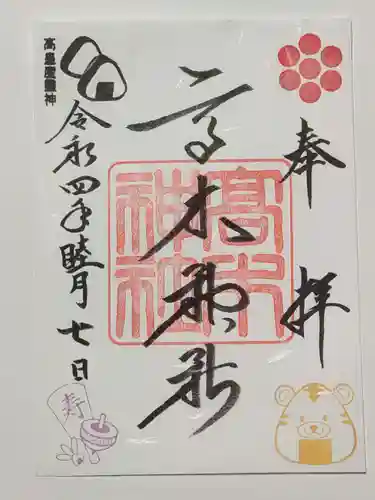 奉拝
高木神社
高木神社
令和四年睦月七日
高皇産靈神
寿